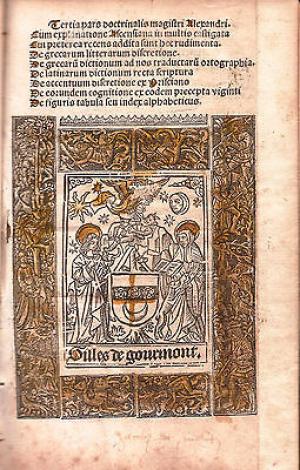 Tertia pars doctrinalis magistri Alexandri.
Cum explanatione Ascensiana in multis castigata
Cui preterea recens addita sunt hec rudimenta.
De grecarum litterarum discretione.
De grecarũ dictionum ad nos traductarũ ortographia.
De latinarum dictionum recta scriptura
De accentuum discretione ex Prisciano
De eorundem cognitione ex eodem precepta viginti
De figuris tabula seu index alphabeticus.
Gilles de gourmont.